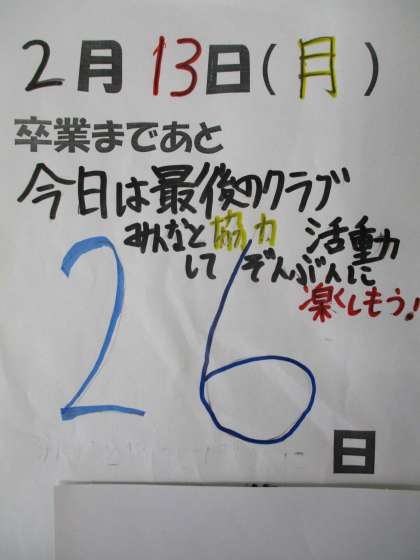 2月13日(月)
卒業まであと
今日は最後のクラブ
活動
みんなと協力
して ぞんぶんに
楽くしもう!
26
日